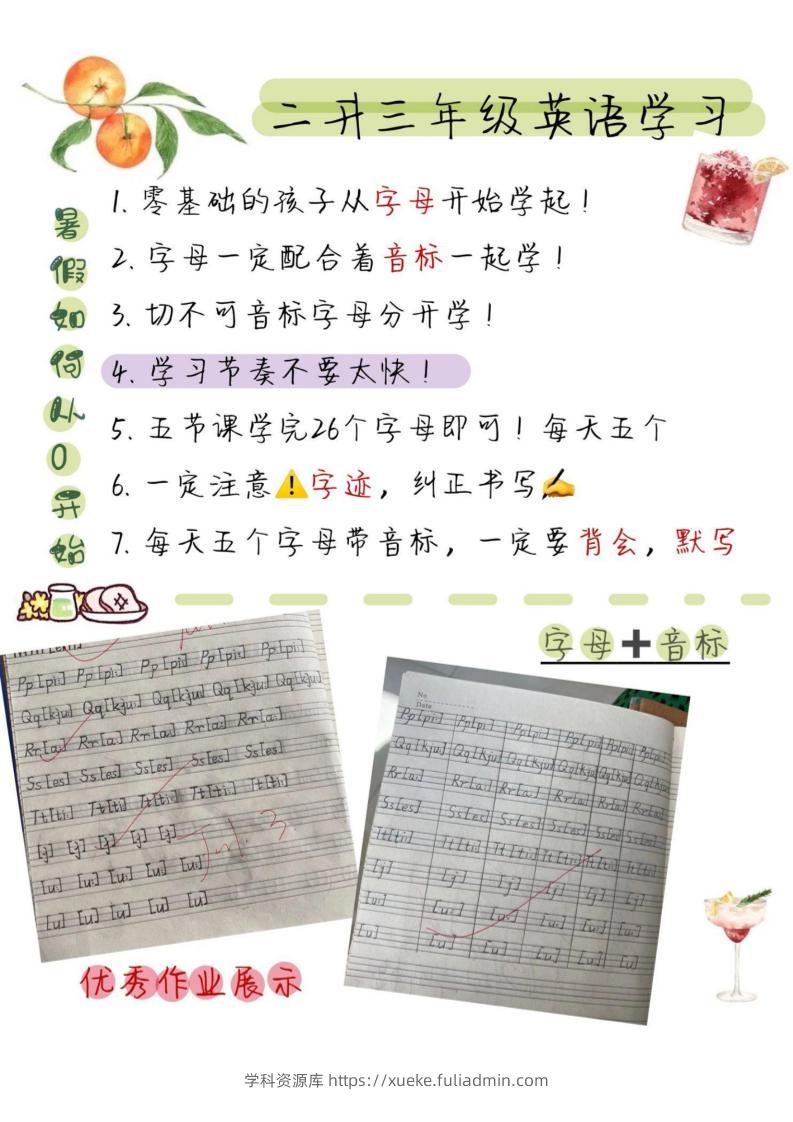 二升三年级英语学习
暑假如何从0开始
1. 零基础的孩子从字母开始学起！
2. 字母一定配合着音标一起学！
3. 切不可音标字母分开学！
4. 学习节奏不要太快！
5. 五节课学完26个字母即可！每天五个
6. 一定注意⚠️字迹，纠正书写✍️
7. 每天五个字母带音标，一定要背会，默写
字母➕音标
Pp [pi:] Pp [pi:] Pp [pi:] Pp [pi:] Pp [pi:]
Qq [kju:] Qq [kju:] Qq [kju:] Qq [kju:] Qq [kju:]
Rr [a:] Rr [a:] Rr [a:] Rr [a:] Rr [a:]
Ss [es] Ss [es] Ss [es] Ss [es] Ss [es]
Tt [ti:] Tt [ti:] Tt [ti:] Tt [ti:] Tt [ti:]
[j] [j] [j] [j] [j]
[u:] [u:] [u:] [u:] [u:]
[u] [u] [u] [u] [u]
No.
Date
Pp [pi:] Pp [pi:] Pp [pi:] Pp [pi:] Pp [pi:] Pp [pi:]
Qq [kju:] Qq [kju:] Qq [kju:] Qq [kju:] Qq [kju:] Qq [kju:]
Rr [a:] Rr [a:] Rr [a:] Rr [a:] Rr [a:] Rr [a:]
Ss [es] Ss [es] Ss [es] Ss [es] Ss [es] Ss [es]
Tt [ti:] Tt [ti:] Tt [ti:] Tt [ti:] Tt [ti:] Tt [ti:]
[j] [j] [j] [j] [j] [j]
[u:] [u:] [u:] [u:] [u:] [u:]
[u] [u] [u] [u] [u] [u]
优秀作业展示
学科资源库 https://xueke.fuliadmin.com